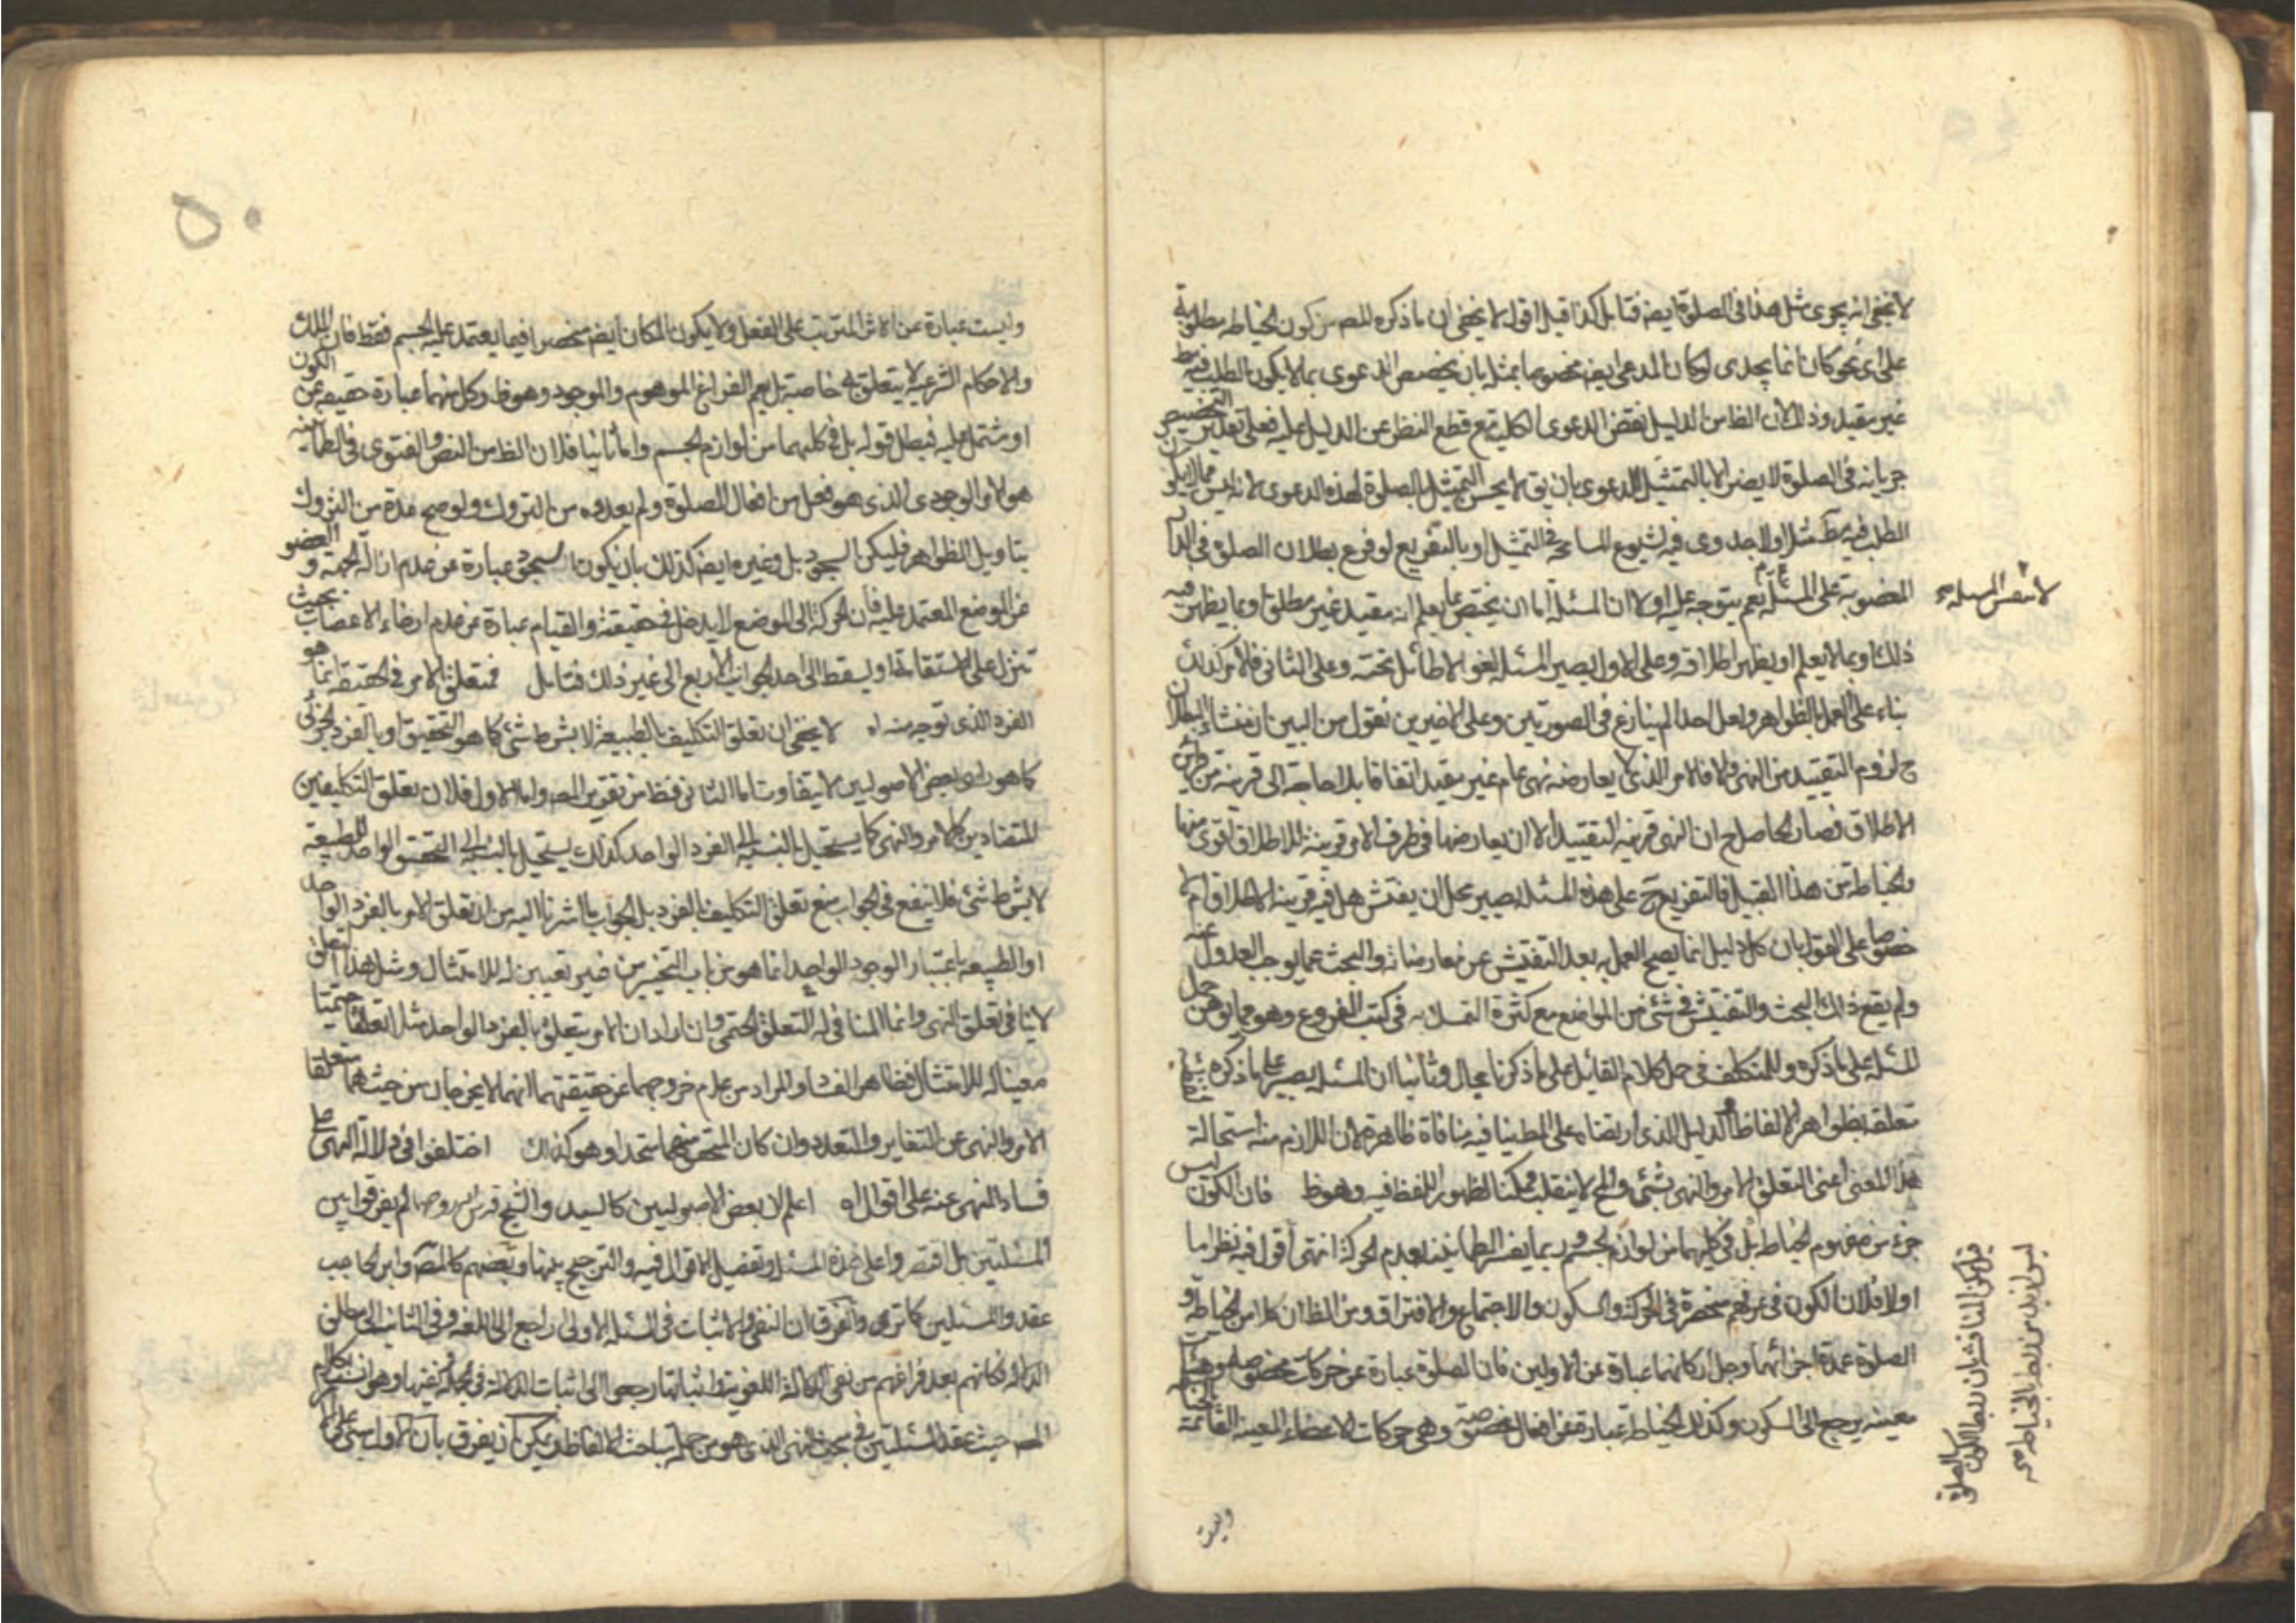 لا يخفى انه يجرى مثل هذا فى الصلوة ايضه فتامل كذا قيل اقول لا يخفى ان ما ذكره المصـ من كون الخياطه مطلوبة
على اى نحو كان انما يجدى لو كان المدعى ايضه مخصوصا بمثله بان يخصص الدعوى بما لا يكون الطلب فيه
غير مقيد وذلك لان الظ من الدليل نقض الدعوى الكلية مع قطع النظر عن الدليل عليه فعلى تقدير التخصيص
جريانه فى الصلوة لا يضر الا بالتمثيل للدعوى بان يق لا يحسن التمثيل بالصلوة لهذه الدعوى لانه ليس مما لا يكون
الطلب فيه مثل اولا جدوى فيه لشيوع المسامحة فى التمثيل او بالتفريع لو فرع بطلان الصلوة فى الدار
المغصوبة على المسئلة نعم يتوجه عليه اولا ان المسئلة اما ان يختص بما يعلم انه مقيد غير مطلق او بما يظهر فيه
لا بنفس المسئله صح
ذلك او بما لا يعلم او يظهر اطلاقه وعلى الاول يصير المسئله لغوا لا طائل تحته وعلى الثانى فالامر كذلك
بناء على العمل بالظواهر ولعل احدا لم ينازع فى الصورتين وعلى الاخيرين نقول من البين ان منشاء البطلان
ح لزوم التقييد من النهى والا فالامر الذى لا يعارضه نهى عام غير مقيد اتفاقا بلا حاجة الى قرينه من خارج
الاطلاق فصار الحاصل ح ان النهى قرينه التقييد الا ان يعارضها فى طرف الامر قرينة للاطلاق اقوى منها
والخياطه من هذا القبيل فالتفريع ح على هذه المسئله يصير محل ان يفتش هل فيه قرينة الاطلاق ام لا
خصوصا على القول بان كل دليل انما يصح العمل به بعد التفتيش عن معارضاته والبحث عما يوجب العدول عنه
ولم يقع ذلك البحث والتفتيش فى شئ من المواضع مع كثرة التمسك به فى كتب الفروع وهو مما يوهن حمل
المسئله على ما ذكره وللتكلف فى حمل كلام القائل على ما ذكرنا مجال وثانيا ان المسئله يصير على ما ذكره
تعلقه بظواهر الالفاظ والدليل الذى ارتضاه على المط ينافيه منافاة ظاهرة لان اللازم منه استحالة
هذا المعنى اعنى التعلق الامر والنهى بشئ والمح لا ينقلب ممكنا لظهور اللفظ فيه وهو ظ فان الكون ليس
جزء من مفهوم الخياطه بل فى كليهما من لوازم الجسم وربما يفسر الطمانينه بعدم الحركة انتهى اقول فيه نظر اما
اولا فلان الكون فى عرفهم منحصرة فى الحركة والسكون والاجتماع والافتراق ومن الظ ان كلا من الخياطه و
الصلوة عمدة اجزائهما وجل اركانهما عبارة عن الاولين فان الصلوة عبارة عن حركات مخصوصه وهيئات
معينه يرجع الى السكون وكذلك الخياطة عبارة عن افعال مخصوصة وهى حركات الاعضاء المعينه القائمة
فيمكن المناقشة ان ربط الكون بالصلوة
ليس ازيد من ربطه بالخياطه صح
وليست
٥٠
وليست عبارة عن الاثر المترتب على الفعل ولا يكون المكان ايضه منحصرا فيما يعتمد عليه الجسم فقط فان الملك
والاحكام الشرعيه لا يتعلق به خاصة بل يعم الفراغ الموهوم والموجود وهو ظ وكل منهما عبارة حقيقه عن الكون
او مشتمل عليه فيبطل قوله بل فى كليهما من لوازم الجسم واما ثانيا فلان الظ من النص والفتوى فى الطمانينه
هو الامر الوجودى الذى هو فعل من افعال الصلوة ولم يعدوه من التروك ولو صح عدة من التروك
بتاويل الظواهر فليكن السجود بل وغيره ايضه كذلك بان يكون السجود عبارة عن عدم ازالة الجبهة و العضو
عن الموضع المعتمد عليه فان الحركة الى الموضع لا يدخل فى حقيقته والقيام عبارة عن عدم ارخاء الاعضاء بحيث
تنزل على الاستقامة او يسقط الى احد الجوانب الاربع الى غير ذلك فتامل فمتعلق الامر فى الحقيقه انما هو
الفرد الذى توجه منه اه لا يخفى ان تعلق التكليف بالطبيعة لا بشرط شئ كما هو التحقيق او بالفرد الجزئى
كما هو راى بعض الاصوليين لا يتفاوت اما الثانى فظ من تقرير المصـ واما الاول فلان تعلق التكليفين
المتضادين كالامر والنهى كما يستحيل بالنسبة الى الفرد الواحد كذلك يستحيل بالنسبة الى التحقق الواحد للطبيعة
لا بشرط شئ فلا ينفع فى الجواب منع تعلق التكليف بالفرد بل الجواب ما اشرنا اليه من ان تعلق الامر بالفرد الواحد
او الطبيعه باعتبار الوجود الواحد انما هو من باب التخيير من غير تعيين له للامتثال ومثل هذا التعلق
لا ينافى تعلق النهى وانما المنافى له التعلق الحتمى وان اراد ان الامر يتعلق بالفرد الواحد مثل تعلقا حتميا
معينا له للامتثال فظاهر الفساد والمراد من عدم خروجهما عن حقيقتهما انهما لا يخرجان من حيث هما متعلقا
الامر والنهى عن التغاير والتعدد وان كان المتحقق منهما متحدا وهو كذلك اختلفوا فى دلالة النهى على
فساد المنهى عنه على اقوال اه اعلم ان بعض الاصوليين كالسيد والشيخ قدس روحهما لم يفرقوا بين
المسئلتين بل اقتصروا على هذه المسئله وتفصيل الاقوال فيه والترجيح بينها وبعضهم كالمصـ وابن الحاجب
عقدوا المسئلتين كما ترى والفرق ان النفى والاثبات فى المسئله الاولى راجع الى اللغه وفى الثانيه الى مطلق
الدلالة فكانهم بعد فراغهم من نفى الدلالة اللغوية واثباتها رجعوا الى اثبات الدلالة فى الجملة ونفيها وهو
المصـ حيث عقد المسئلتين فى بحث النهى الذى هو من جملة مباحث الالفاظ ويمكن ان يفرق بان الاول